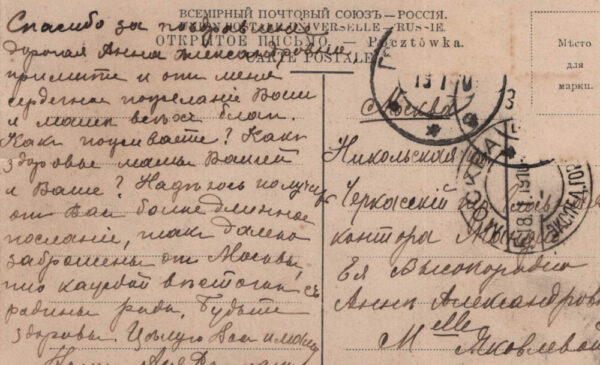 ВСЕМІРНЫЙ ПОЧТОВЫЙ СОЮЗЪ – РОССІЯ.
UNION POSTALE UNIVERSELLE – RUSSIE.
ОТКРЫТОЕ ПИСЬМО. — Pocztówka.
CARTE POSTALE
Мѣсто
для
марки.
Спасибо за
дорогая Анна Александровна
примите и отъ меня
сердечное пожеланіе Вамъ
и мамѣ всѣхъ благъ.
Какъ поживаете? Какъ
здоровье мамы Вашей
и Ваше? Надѣюсь получить
отъ Васъ болѣе длинное
посланіе, такъ далеко
заброшены отъ Москвы,
что каждой вѣсточкѣ съ
родины рады. Будьте
здоровы. Цѣлую Васъ и
Москва
Никольская
Черкасскій пер.
контора
Ея Высокородію
Аннѣ Александровнѣ
M elle Яковлевой